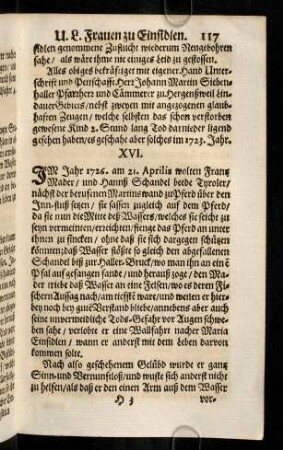 U. L. Frauen zu Einsidlen. 117
sidlen genommene Zuflucht wiederum Neugebohren
sahe/ als wäre ihme nie einiges Leid zu gestossen.
Alles obiges bekräftiget mit eigener Hand Unter-
schrift und Petschafft: Herr Johann Martin Sieben-
haller Pfarrherr und Cammerer zu Hergensweil Lin-
dauer Gebiets/ nebst zweyen mit angezogenen glaub-
haften Zeugen/ welche selbsten das schon verstorben
gewesene Kind 2. Stund lang Tod darnieder ligend
gesehen haben/ es geschahe aber solches im 1723. Jahr.
XVI.
IM Jahr 1726. am 21. Aprilis wolten Frantz
Mader/ und Hannß Schandel beide Tyroler/
nächst der berusenen Martinswand zu Pferd über den
Inn-fluß setzen/ sie sassen zugleich auf dem Pferd/
da sie nun die Mitte deß Wassers/ welches sie seicht zu
seyn vermeinten/ erreichten/ fienge das Pferd an unter
ihnen zu sincken/ ohne daß sie sich dargegen schützen
konnten; daß Wasser stößte so gleich den abgefallenen
Schandel biß zur Haller-Bruck/ wo man ihn an ein E
Pfal auf gefangen fande/ und herauß zoge/ den Ma-
der triebe daß Wasser an eine Felsen/ wo es deren Fi-
schern Aussag nach/ am tieffstē ware/ und weilen er hier-
bey noch bey gutē Verstand bliebe/ annebens aber auch
seine unvermeidliche Tods-Gefahr vor Augen schwe-
ben sahe/ verlobter er eine Wallfahrt nacher Maria
Einsidlen/ wann er anderst mit dem Leben darvon
kommen solte.
Nach also geschehenem Gelübd wurde er gantz
Sinn- und Vernunftloß/ und wuste sich anderst nicht
zu helfen/ als daß er den einen Arm auß dem Wasser
H 3 vor-